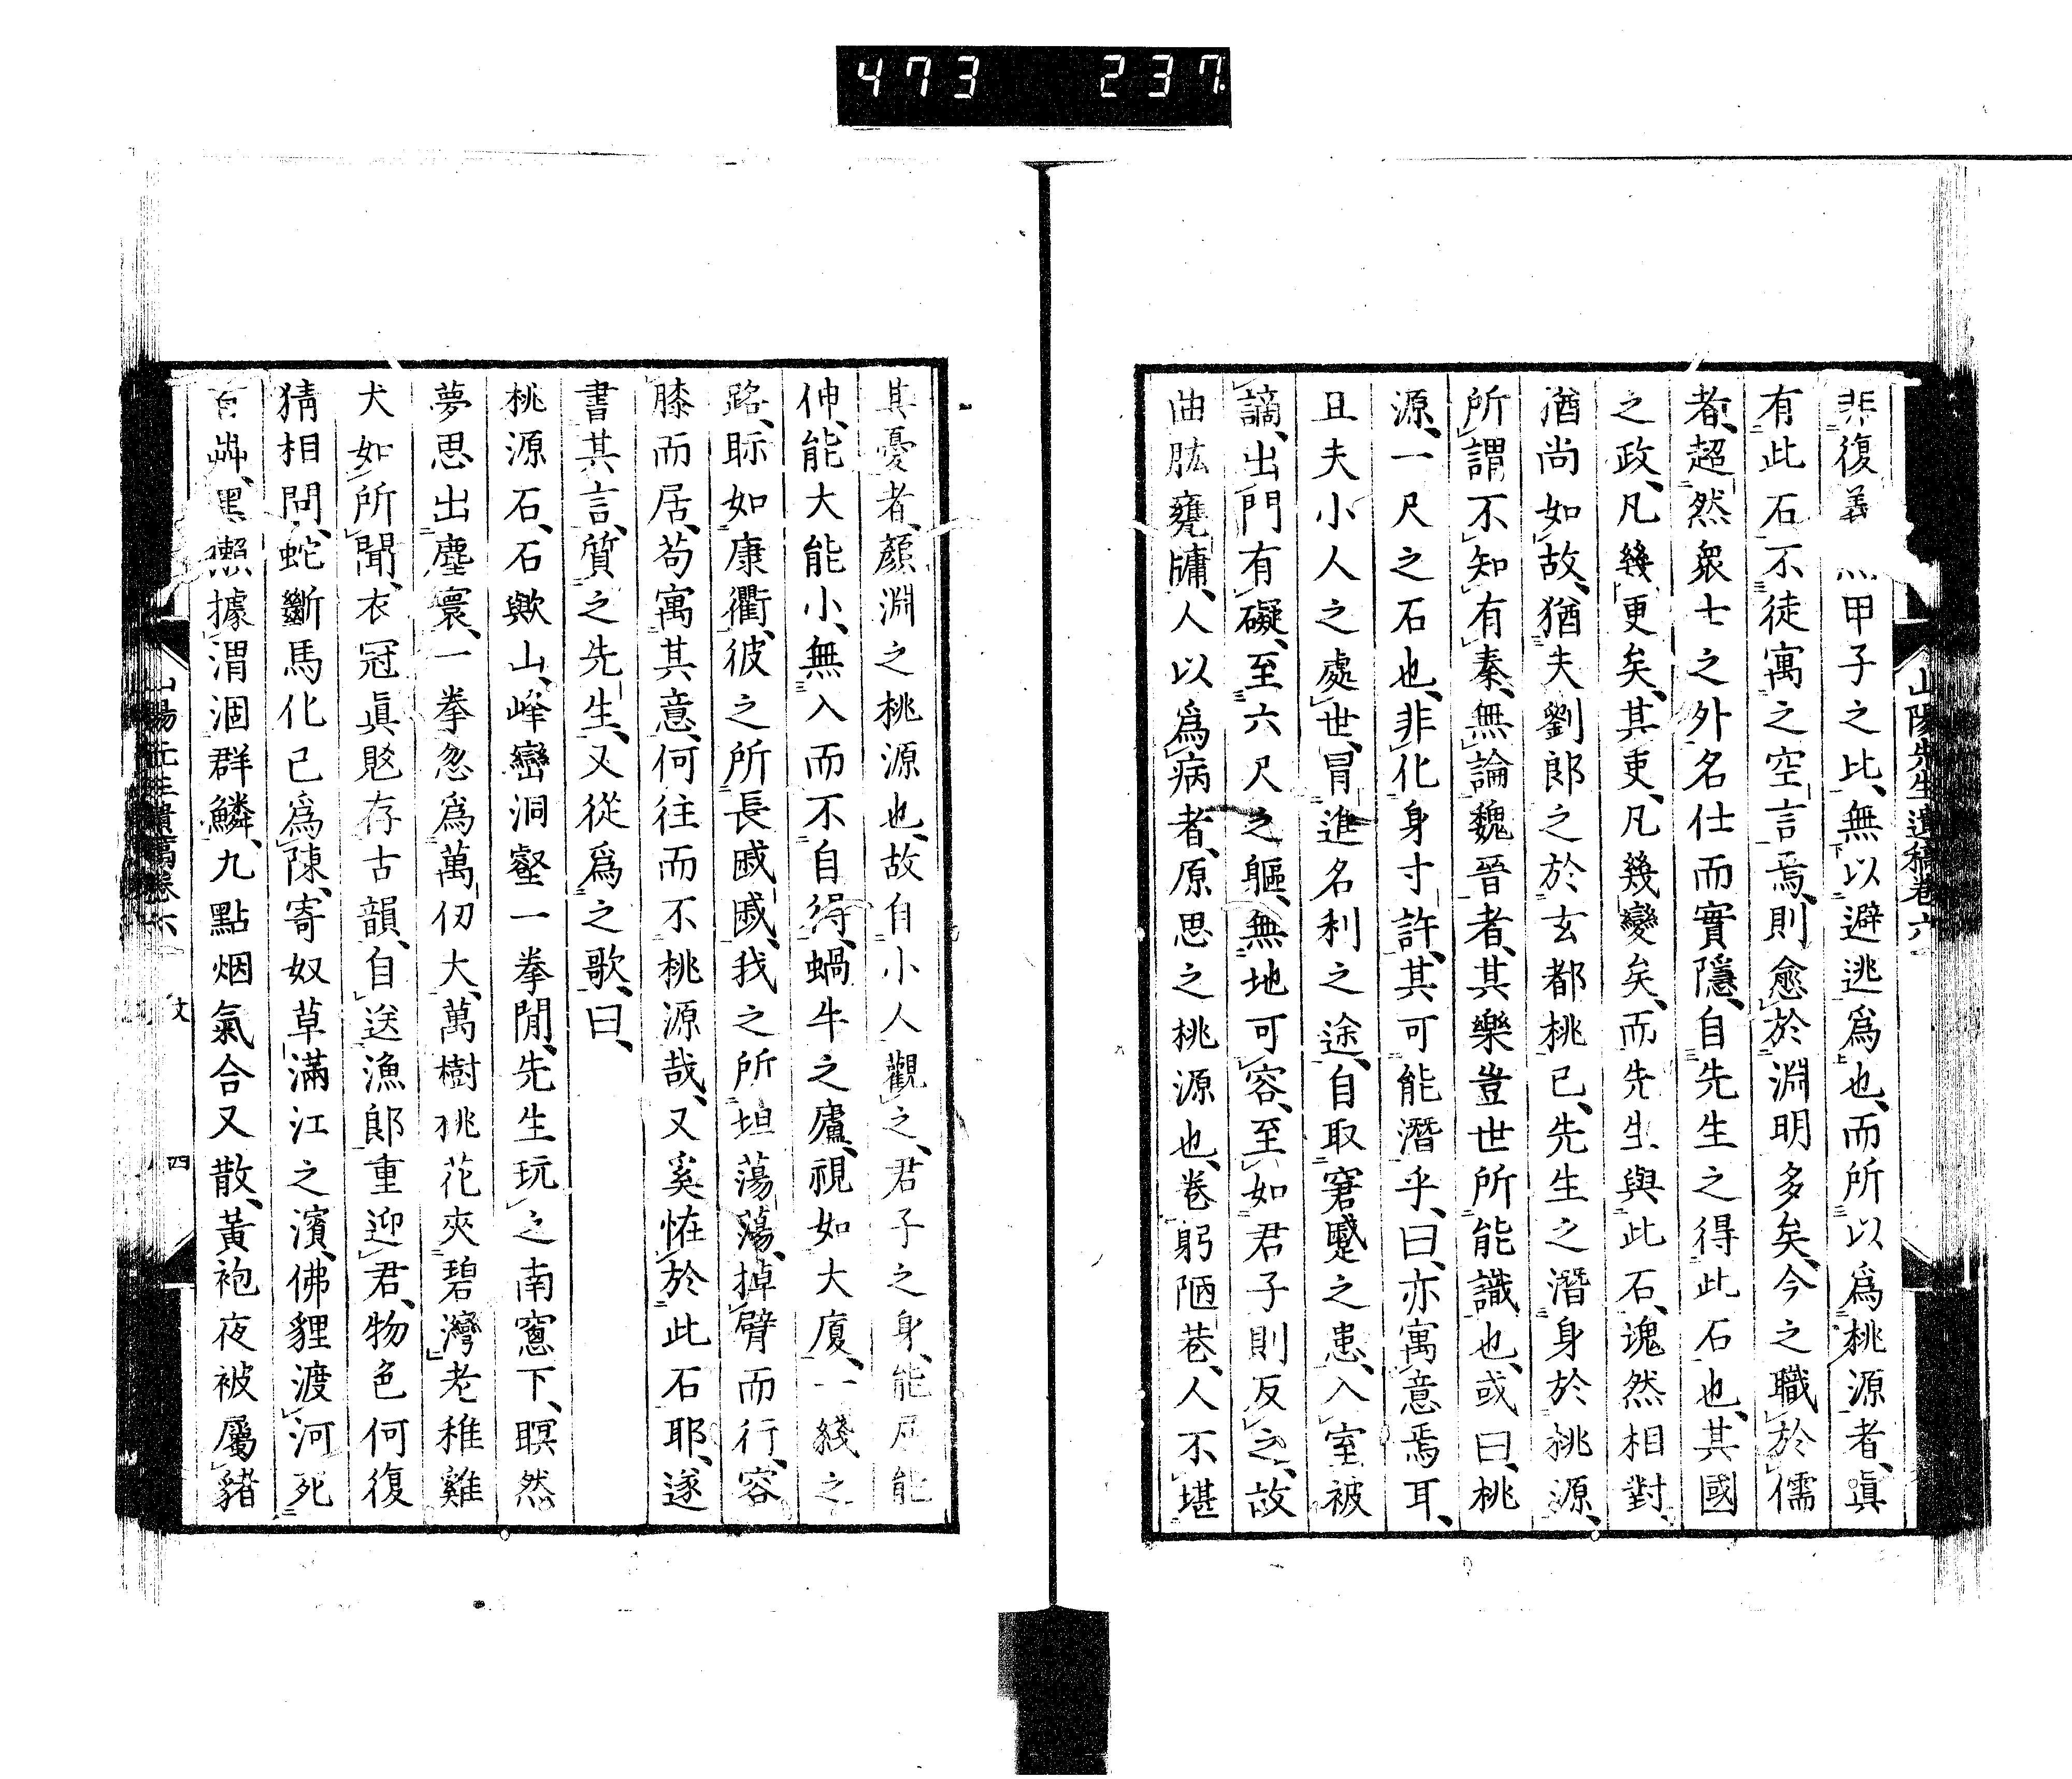 473 237
山陽先生遺稿卷六
非復義熙甲子之比、無以避逃爲也、而所以爲桃源者、眞
有此石、不徒寓之空言焉、則愈於淵明多矣、今之職於儒
者、超然衆士之外、名仕而實隱、自先生之得此石也、其國
之政、凡幾更矣、其吏、凡幾變矣、而先生與此石、塊然相對、
猶尚如故、猶夫劉郎之於玄都桃已、先生之潛身於桃源、
所謂不知有秦、無論魏晉者、其樂豈世所能識也、或曰、桃
源、一尺之石也、非化身寸許、其可能潛乎、曰、亦寓意焉耳、
且夫小人之處世、冒進名利之途、自取窘蹙之患、入室被
謫、出門有礙、至六尺之軀、無地可容、至如君子則反之、故
曲肱甕牖、人以爲病者、原思之桃源也、卷躬陋巷、人不堪
其憂者、顏淵之桃源也、故自小人觀之、君子之身、能屈能
伸、能大能小、無入而不自得、蝸牛之廬、視如大廈、一綫之
路、眎如康衢、彼之所長戚戚、我之所坦蕩蕩、掉臂而行、容
膝而居、苟寓其意、何往而不桃源哉、又奚恠於此石耶、遂
書其言、質之先生、又從爲之歌、曰、
桃源石、石歟山、峰巒洞壑一拳閒、先生玩之南窻下、瞑然
夢思出塵寰、一拳忽爲萬仞大、萬樹桃花夾碧灣、老稚雞
犬如所聞、衣冠眞愍存古韻、自送漁郎重迎君、物色何復
猜相問、蛇斷馬化已爲陳、寄奴草滿江之濱、佛貍渡河死
百艸、黑獺據渭涸群鱗、九點烟氣合又散、黃袍夜被屬豬
山陽先生遺稿卷六 文 四